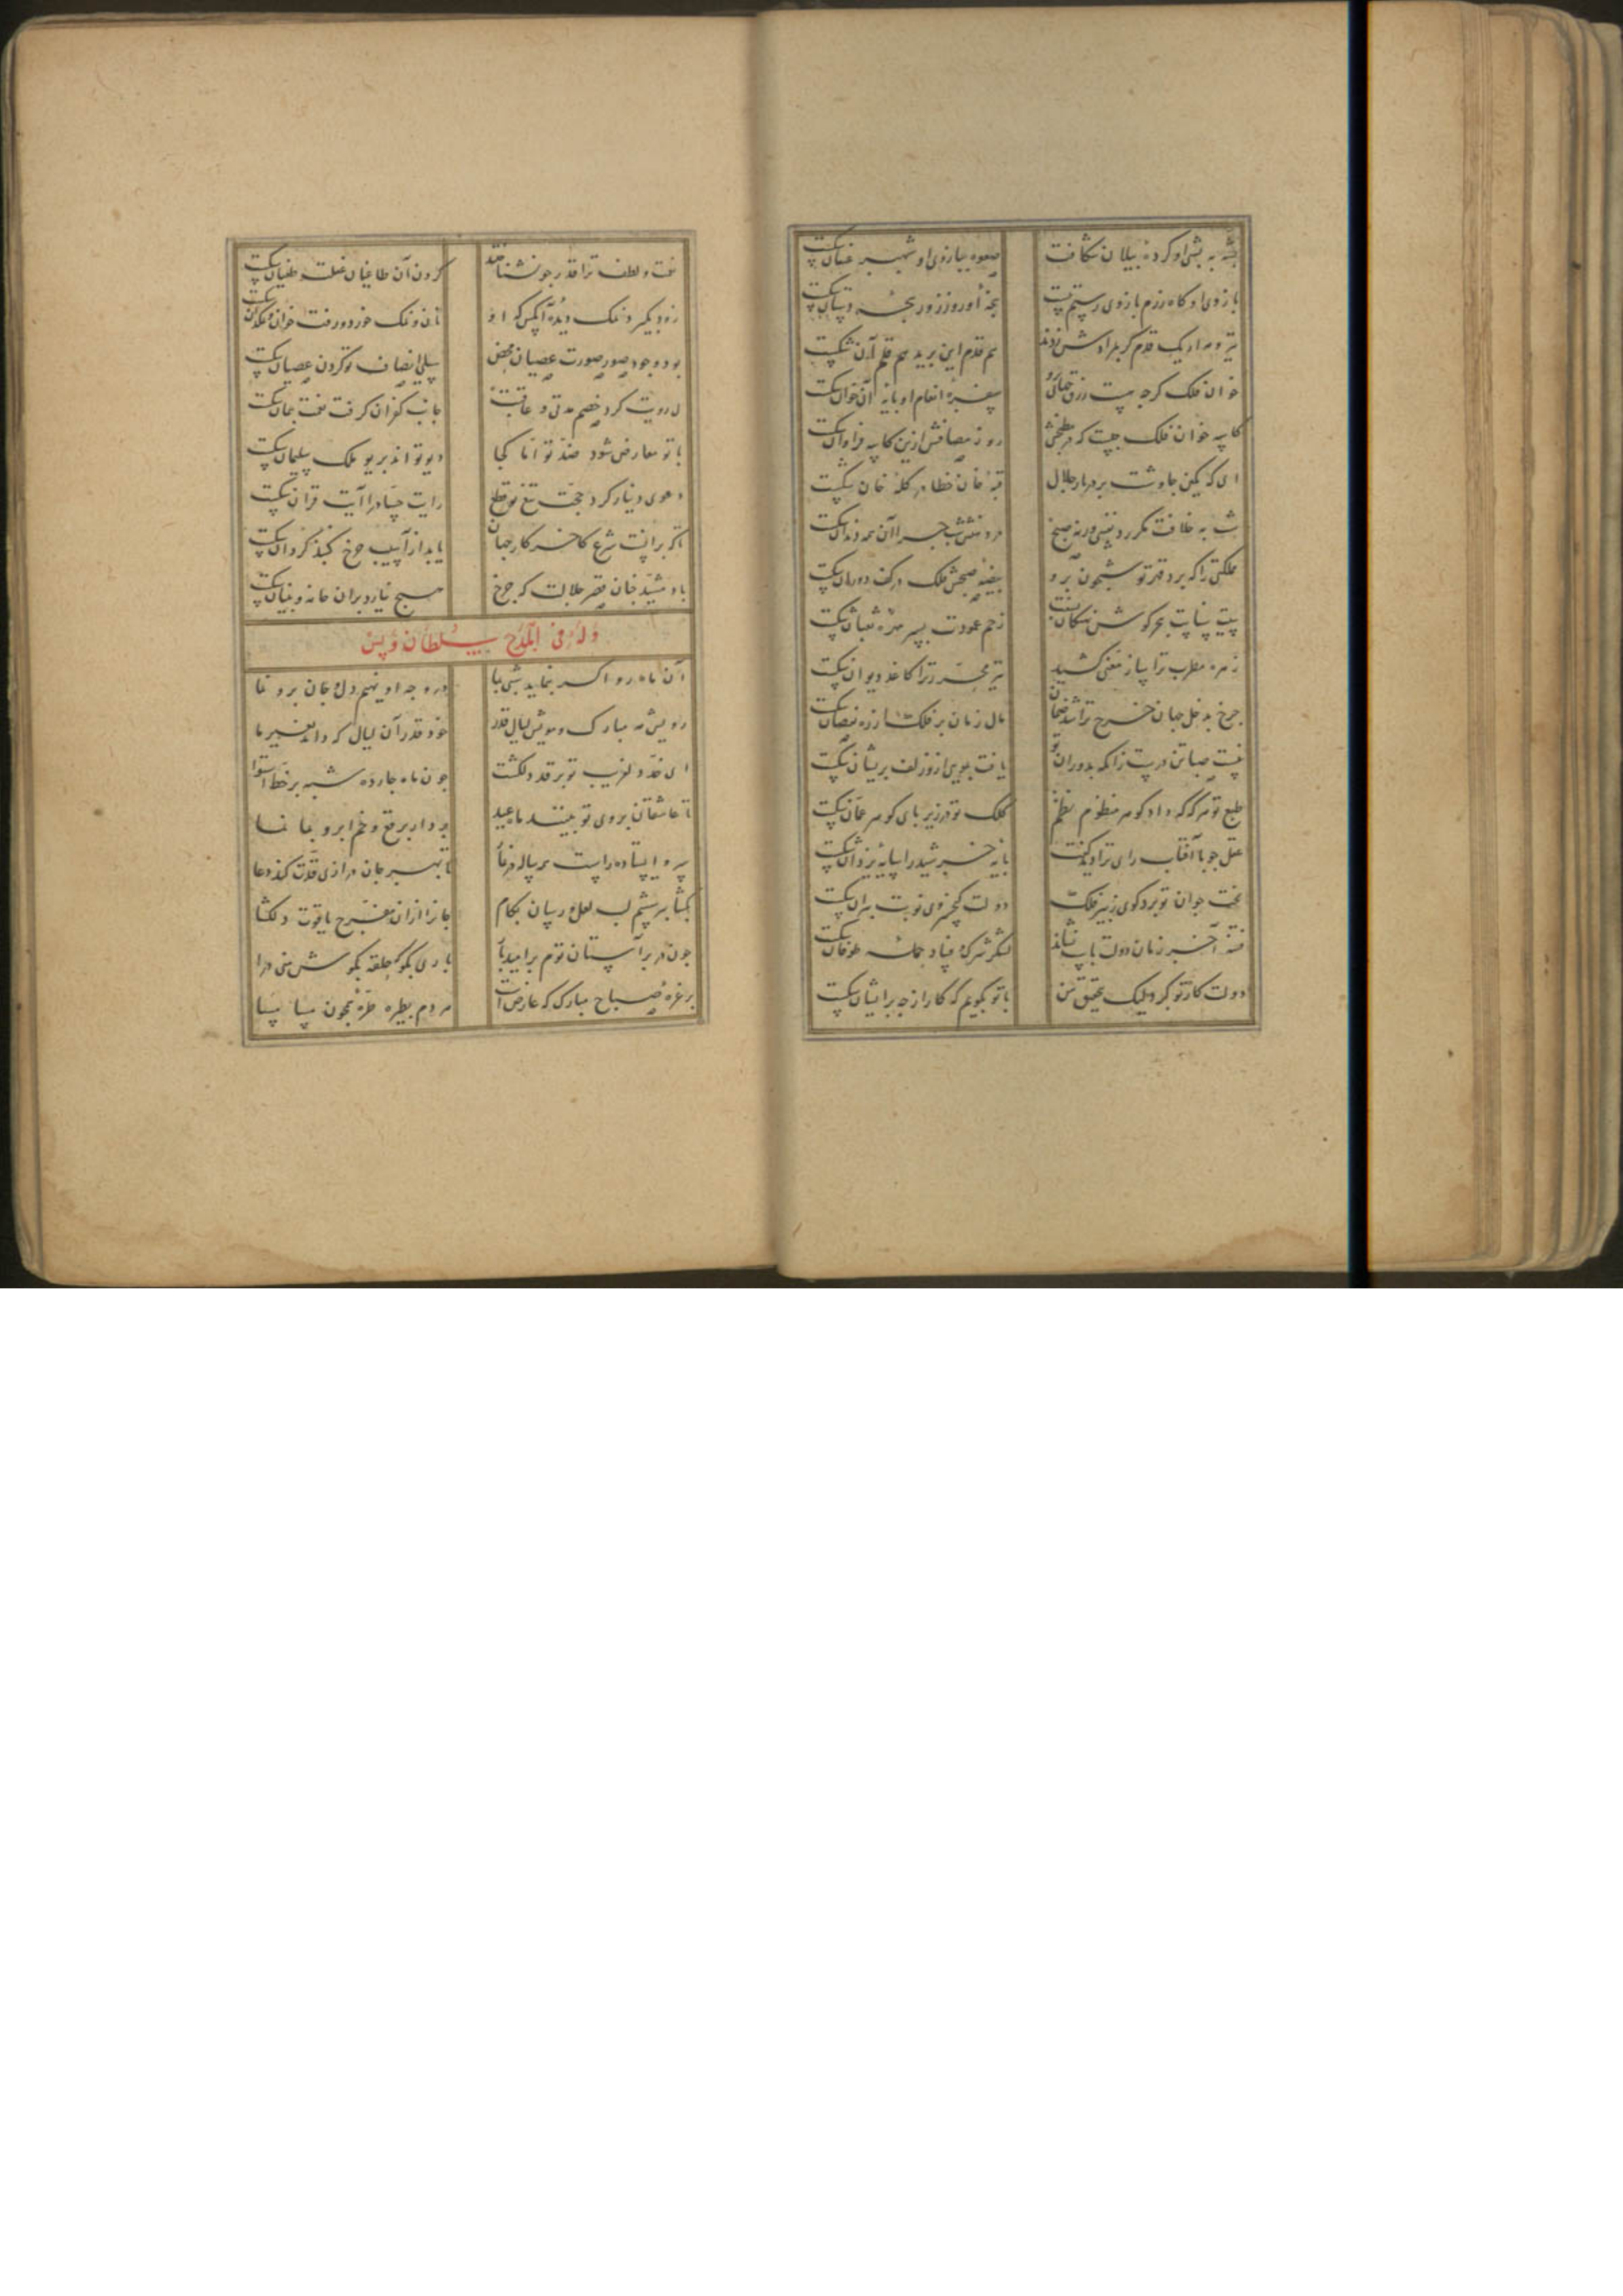 پشه به پشتی او کرده پیلان شکافت
صعوه ببازوی او شهپر عقبان شکست
بازوی او گاه رزم بازوی رستم ببست
پنجه او روز زور پنجه دستان شکست
تیر و مه ار یک قدم گر بمرادش زدند
هم قدم این برید هم قلم آن شکست
خوان فلک گرچه هست رزق جهانی برو
سفره انعام او پایه آن خوان شکست
کاسه خوان فلک چیست که در مطبخش
روز مصافش ازین کاسه فراوان شکست
ای که کمین چاوشت بر در بار جلال
قبه خان خطا در کله خان شکست
شب به خلافت مگر زد نفسی ورنه صبح
در دهنش شب چرا آن همه دندان شکست
مملکتی را که برد قهر تو شبخون برو
بیضه صبحش فلک در کف دوران شکست
هیبت پاست بحرگوش نهنگان
زخم عمودت بسر مهره ثعبان شکست
زهره مطرب ترا ساز مغنی کشید
تیر محرر ترا کاغذ دیوان شکست
چرخ بدخل جهان خرج ترا شد ضمان
مال زمان بر فلک زده نقصان شکست
نیست صبا تن درست زانکه بدوران تو
یافت بمویی ازو زلف پریشان شکست
طبع تو هرگه که داد گوهر منظوم نظم
کلک تو در زیر پای گوهر عمان شکست
عقل چو با آفتاب رای ترا دید گفت
پایه خورشید را سایه یزدان شکست
بخت جوان تو برد گوی ز پیر فلک
دولت کیخسروی نوبت پیران شکست
فتنه آخر زمان دولت باست نشاند
لشکر شرک و فساد حمله طوفان شکست
دولت کار تو کرد لیک بتحقیق من
با تو بگویم که کار از چه بر ایشان شکست
نعمت و لطف ترا قدر چو نشناختند
گردن آن طاغیان غفلت و طغیان شکست
زود بگیرد نمک دیده آنکس که او
نان و نمک خورد و رفت خوان و نمکدان شکست
بود وجود صور صورت عصیان محض
سیلی انصاف تو گردن عصیان شکست
رویت کرد خصم مدتی و عاقبت
جانب کفران گرفت نعمت شکست
با تو معارض شود ضد تو اما کجا
دیو تواند بریو ملک سلیمان شکست
دعوی دینار کرد حجت تیغ تو قطع
رایت چپا را آیت قرآن شکست
تا که براینست شرع کاخر کار جهان
یابد از آسیب چرخ گنبد گردان شکست
باد مشید چنان قصر جلالت که چرخ
هیچ نیارد بران خانه و بنیان شکست
وله فی المدح سلطان ویس
آن ماه رو اگر بنماید شبی بما
در وجه او نهیم دل و جان برو نما
رویش مه مبارک و مویش لیال قدر
خود قدر آن لیال که داند بغیر ما
ای خد دلفریب تو بر قد دلکشت
چون ماه چارده شبه بر خط استوا
تا عاشقان بروی تو بینند ماه عید
بردار برقع و خم ابرو بما نما
سرو ایستاده راست بر ساله در دعا
تا بهر جان درازی قدت کند دعا
بگشا بر شم لب لعل و رسان بکام
جانرا ازان مفرح یاقوت دلگشا
چون در بر آستان توم بر امید آن
باری بگو که حلقه بگوش منی درا
بر غره صباح مبارک که عارض است
مردم بطیره طره همچون مسا مسا